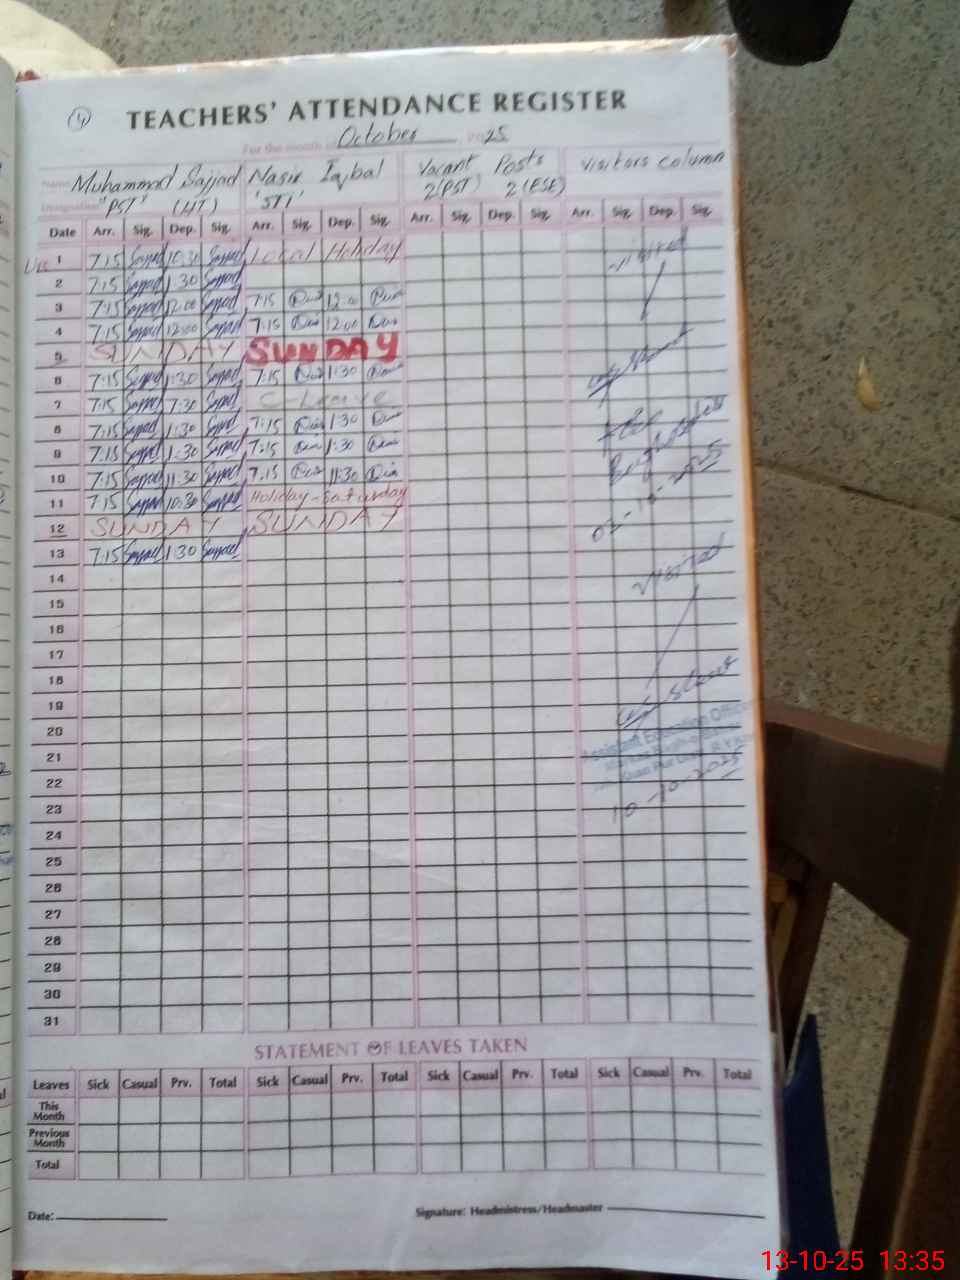 4
TEACHERS' ATTENDANCE REGISTER
For the month of October 2025
Name Muhammad Sajjad Nasir Iqbal Vacant Posts Visitors column
Designation "PST" (HT) 'STI' 2(PST) 2(ESE)
Date Arr. Sig. Dep. Sig. Arr. Sig. Dep. Sig. Arr. Sig. Dep. Sig. Arr. Sig. Dep. Sig.
1 7:15 Sajjad 10:30 Sajjad Local Holiday visited
2 7:15 Sajjad 1:30 Sajjad
3 7:15 Sajjad 12:00 Sajjad 7:15 12:00
4 7:15 Sajjad 12:00 Sajjad 7:15 12:00
5 SUNDAY SUNDAY
6 7:15 Sajjad 1:30 Sajjad 7:15 1:30
7 7:15 Sajjad 1:30 Sajjad C-Leave
8 7:15 Sajjad 1:30 Sajjad 7:15 1:30
9 7:15 Sajjad 1:30 Sajjad 7:15 1:30
10 7:15 Sajjad 11:30 Sajjad 7:15 11:30
11 7:15 Sajjad 10:30 Sajjad Holiday-Saturday
12 SUNDAY SUNDAY
13 7:15 Sajjad 1:30 Sajjad
visited
14
15
16
17
18
19
20
21 Assistant Education Officer
22
23 10-10-2025
24
25
26
27
28
29
30
31
STATEMENT OF LEAVES TAKEN
Leaves Sick Casual Prv. Total Sick Casual Prv. Total Sick Casual Prv. Total Sick Casual Prv. Total
This Month
Previous Month
Total
Date:
Signature: Headmistress/Headmaster
13-10-25 13:35